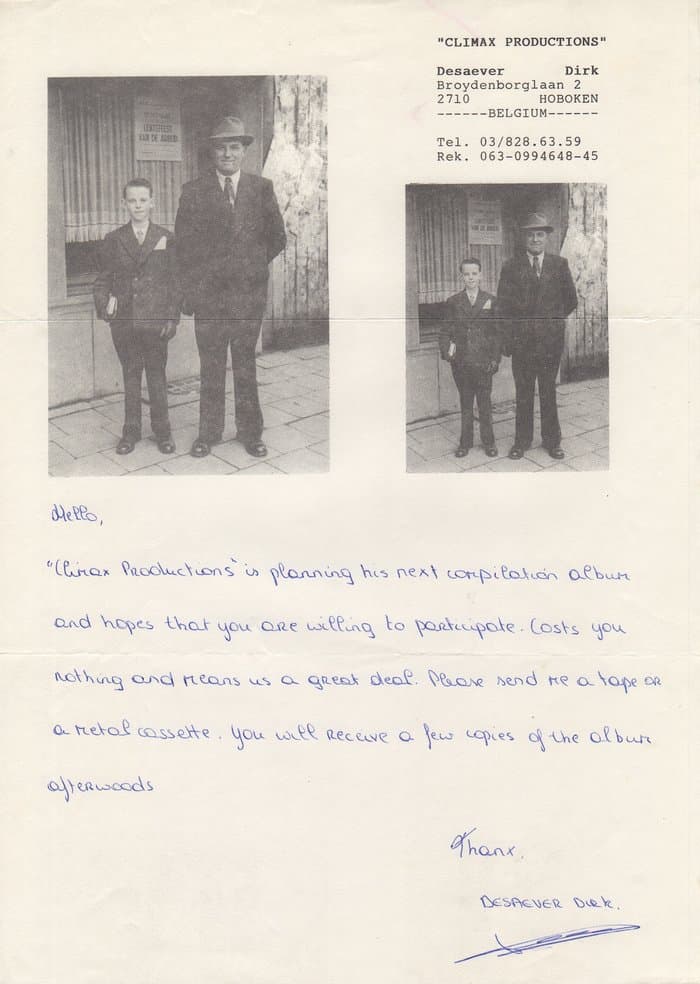 "CLIMAX PRODUCTIONS"
Desaever Dirk
Broydenborglaan 2
2710 HOBOKEN
------BELGIUM------
Tel. 03/828.63.59
Rek. 063-0994648-45
LENTEFEEST
VAN DE ARBEID
Hello,
"Climax Productions" is planning his next compilation album
and hopes that you are willing to participate. Costs you
nothing and means us a great deal. Please send me a tape or
a metal cassette. You will receive a few copies of the album
afterwoods
Thanx,
DESAEVER DIRK.